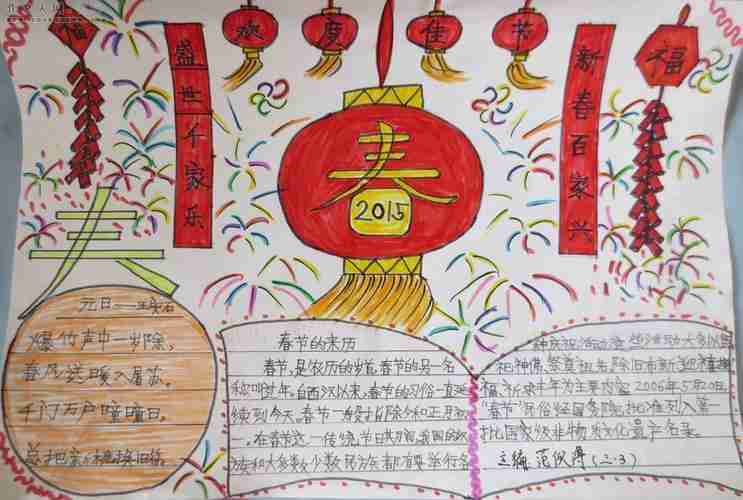 欢度佳节
福
盛世千家乐
春
2015
新春百家兴
福
春
元日——王安石
爆竹声中一岁除,
春风送暖入屠苏。
千门万户曈曈日,
总把新桃换旧符。
春节的来历
春节,是农历的岁首,春节的另一名
称叫过年。自西汉以来,春节的习俗一直延
续到今天。春节一般指除夕和正月初
一。在春节这一传统节日期间,我国的汉
族和大多数少数民族都要举行各
种庆祝活动,这些活动大多以
祭祀神佛、祭奠祖先、除旧布新、迎禧接
福、祈求丰年为主要内容。2006年5月20日,
“春节”民俗经国务院批准列入第一
批国家级非物质文化遗产名录。
主编 范
(三.3)